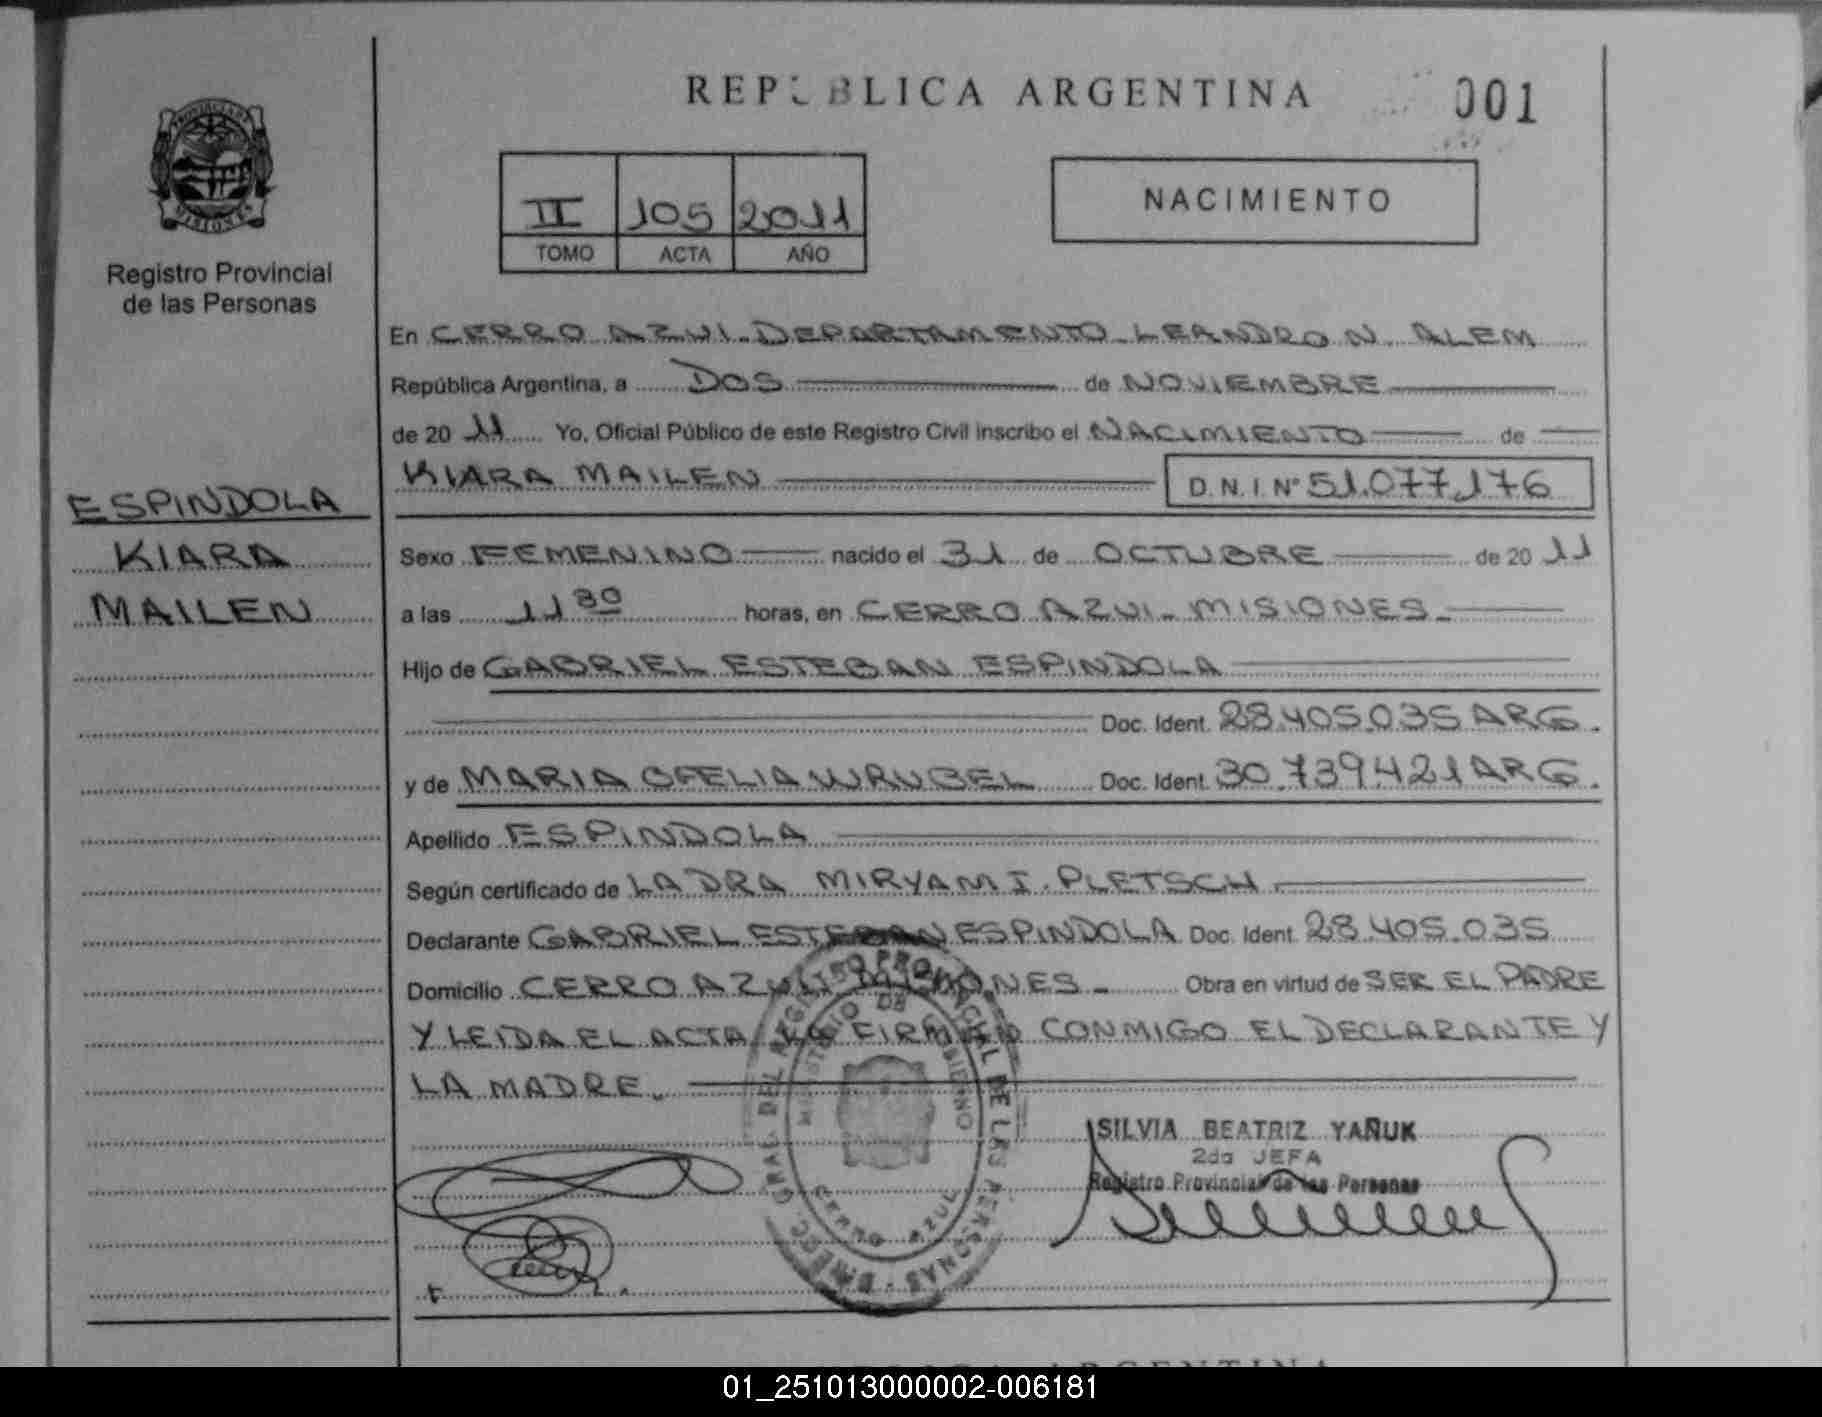 REPUBLICA ARGENTINA
001
PROVINCIA DE MISIONES
Registro Provincial
de las Personas
II 105 2011
TOMO ACTA AÑO
NACIMIENTO
En CERRO AZUL - DEPARTAMENTO LEANDRO N. ALEM
República Argentina, a DOS de NOVIEMBRE
de 20 11 Yo, Oficial Público de este Registro Civil inscribo el NACIMIENTO de
KIARA MAILEN D.N.I. N° 51.077.176
ESPINDOLA
KIARA
MAILEN
Sexo FEMENINO nacido el 31 de OCTUBRE de 20 11
a las 11 30 horas, en CERRO AZUL - MISIONES -
Hijo de GABRIEL ESTEBAN ESPINDOLA
Doc. Ident. 28.405.035 ARG.
y de MARIA OFELIA WRUBEL Doc. Ident. 30.739.421 ARG.
Apellido ESPINDOLA
Según certificado de LA DRA MIRYAM I. PLETSCH
Declarante GABRIEL ESTEBAN ESPINDOLA Doc. Ident. 28.405.035
Domicilio CERRO AZUL - MISIONES - Obra en virtud de SER EL PADRE
Y LEIDA EL ACTA LA FIRMAN CONMIGO EL DECLARANTE Y
LA MADRE.
SILVIA BEATRIZ YAÑUK
2da JEFA
Registro Provincial de las Personas
DIRECC. GRAL. DEL REGISTRO PROVINCIAL DE LAS PERSONAS
MINISTERIO DE GOBIERNO
CERRO AZUL
REPUBLICA ARGENTINA
01_251013000002-006181